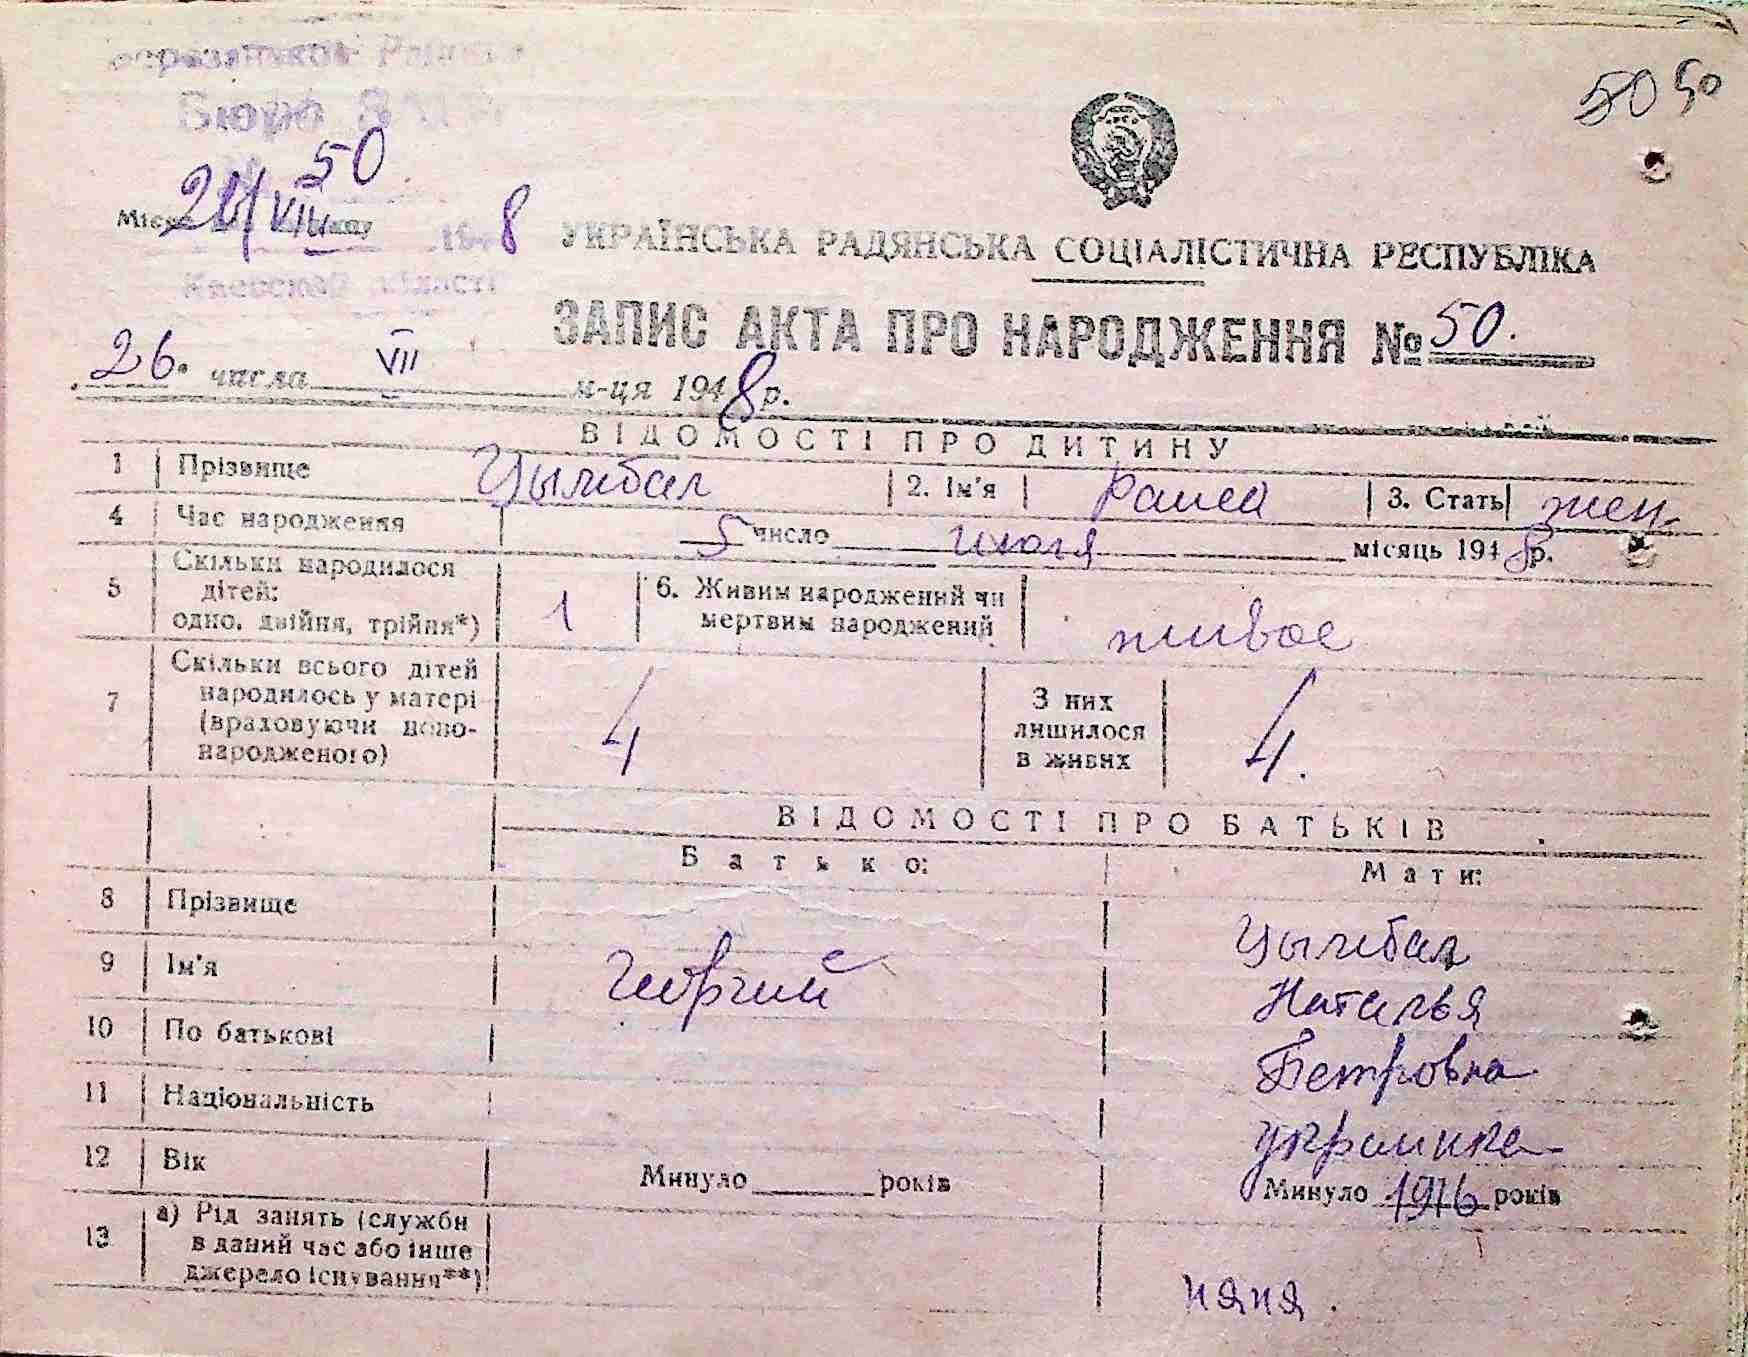 50 50
Бюро
50
26/VII 8
УКРАЇНСЬКА РАДЯНСЬКА СОЦІАЛІСТИЧНА РЕСПУБЛІКА
ЗАПИС АКТА ПРО НАРОДЖЕННЯ № 50.
26. числа VII м-ця 1948 р.
ВІДОМОСТІ ПРО ДИТИНУ
1 Прізвище Цымбал 2. Ім'я Раиса 3. Стать жен.
4 Час народження 5 число июля місяць 1948 р.
5 Скільки народилося дітей: одно, двійня, трійня*) 1 6. Живим народжений чи мертвим народжений живое
7 Скільки всього дітей народилось у матері (враховуючи новонародженого) 4 З них лишилося в живих 4.
ВІДОМОСТІ ПРО БАТЬКІВ
Батько: Мати:
8 Прізвище Цымбал
9 Ім'я Георгий Наталья
10 По батькові Петровна
11 Національність украинка
12 Вік Минуло років Минуло 1916 років
13 а) Рід занять (служби в даний час або інше джерело існування**) няня.